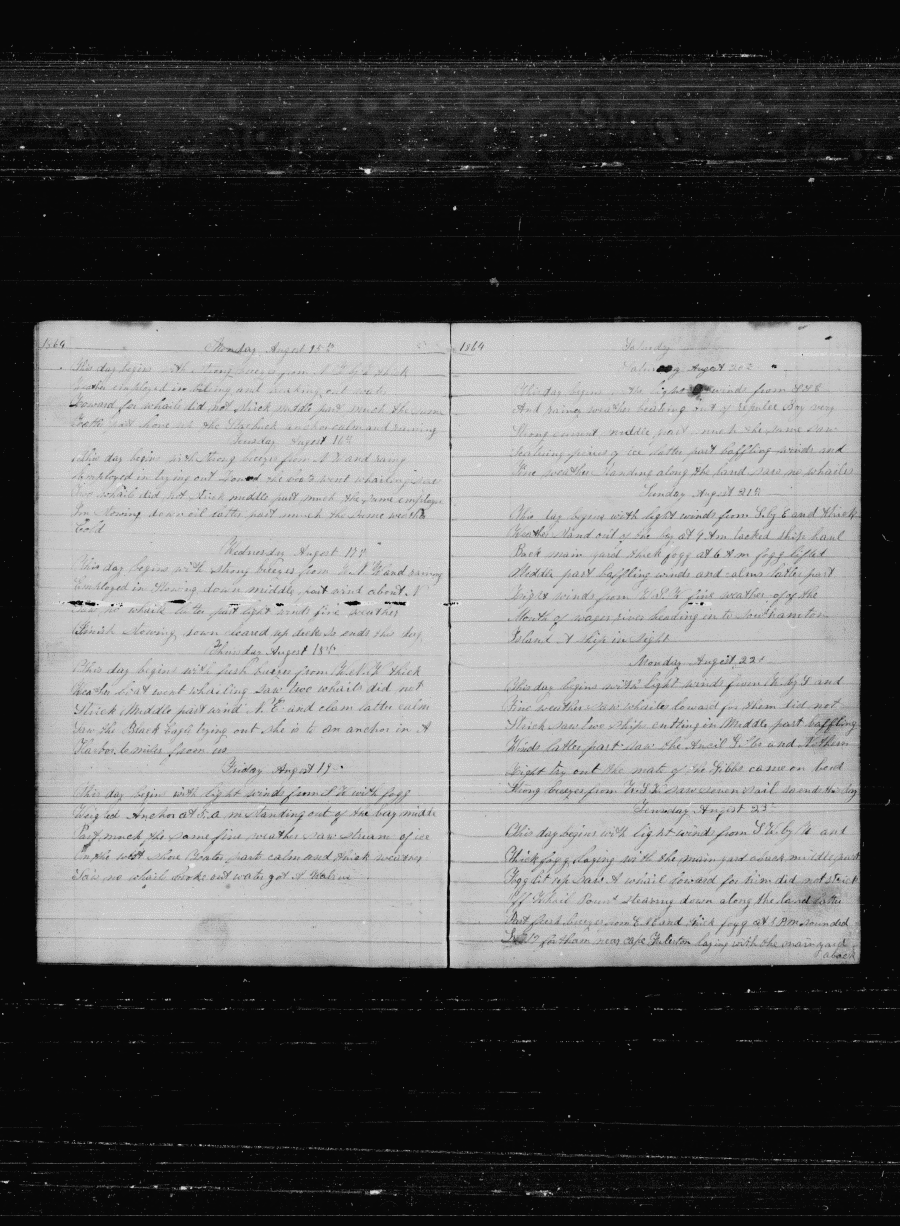 1864
Monday August 15th
This day begins with strong breezes from N thick
employed in and
lowered for whails did not strick middle part much the same
latter part calm and raining
Teusday August 16th
This day begins with strong breezes from N E and rainy
Employed in trying out the boats went whailing saw
two whails did not strick middle part much the same employed
In stowing down oil latter part much the same weather
Cold
Wednesday August 17
This day begins with strong breezes from and rainy
Employed in stowing down middle part wind about N
saw no whails latter part light winds fine weather
finish stowing down cleared up decks so ends this day
Thursday August 18th
This day begins with fresh breezes from thick
weather boat went whailing saw two whails did not
Strick Middle part wind N. E. and calm latter calm
saw the Black Eagle trying out she is to an anchor in A
Harbor 6 miles from us
Friday August 19
This day begins with light winds from with fogg
Weighed Anchor at 5 a m Standing out of the bay middle
Part much the same fine weather saw stream of ice
On the west shore latter part calm and thick weather
Saw no whails broke out water got A
1864
Saturday
Saturday August 20
This day begins with light winds from
And rainy weather beating out of repulse Bay very
Strong current middle part much the same saw
peaces of ice latter part baffling winds and
Fine weather standing along the land saw no whailes
Sunday August 21th
This day begins with light winds from S by E and thick
Weather Stand out of the bay at 9 Am tacked ship haul
Back main yard thick fogg at 6 A m fogg lifted
Middle part baffling winds and calms latter part
Light winds from fine weather off of the
Mouth of wager river heading in to Southamton
Island A ship in sight
Monday August 22
This day begins with light winds from by S and
Fine weather saw whailes loward for them did not
Strick saw two ships cutting in Middle part baffling
Winds latter part saw the Ansil Gibbs and Nothern
Light try out the mate of the Gibbs came on bord
Strong breezes from saw seven sail so ends this day
Teusday August 23
This day begins with light winds from by N and
Thick fogg laying with the main yard aback middle part
Fogg lit up saw A whail loward for him did not strick
Off Whail Point steering down along the land latter
Part fresh breezes from and thick fogg at 8 P.m sounded
In 17 fortham near cape Fulerton laying with the mainyard
aback